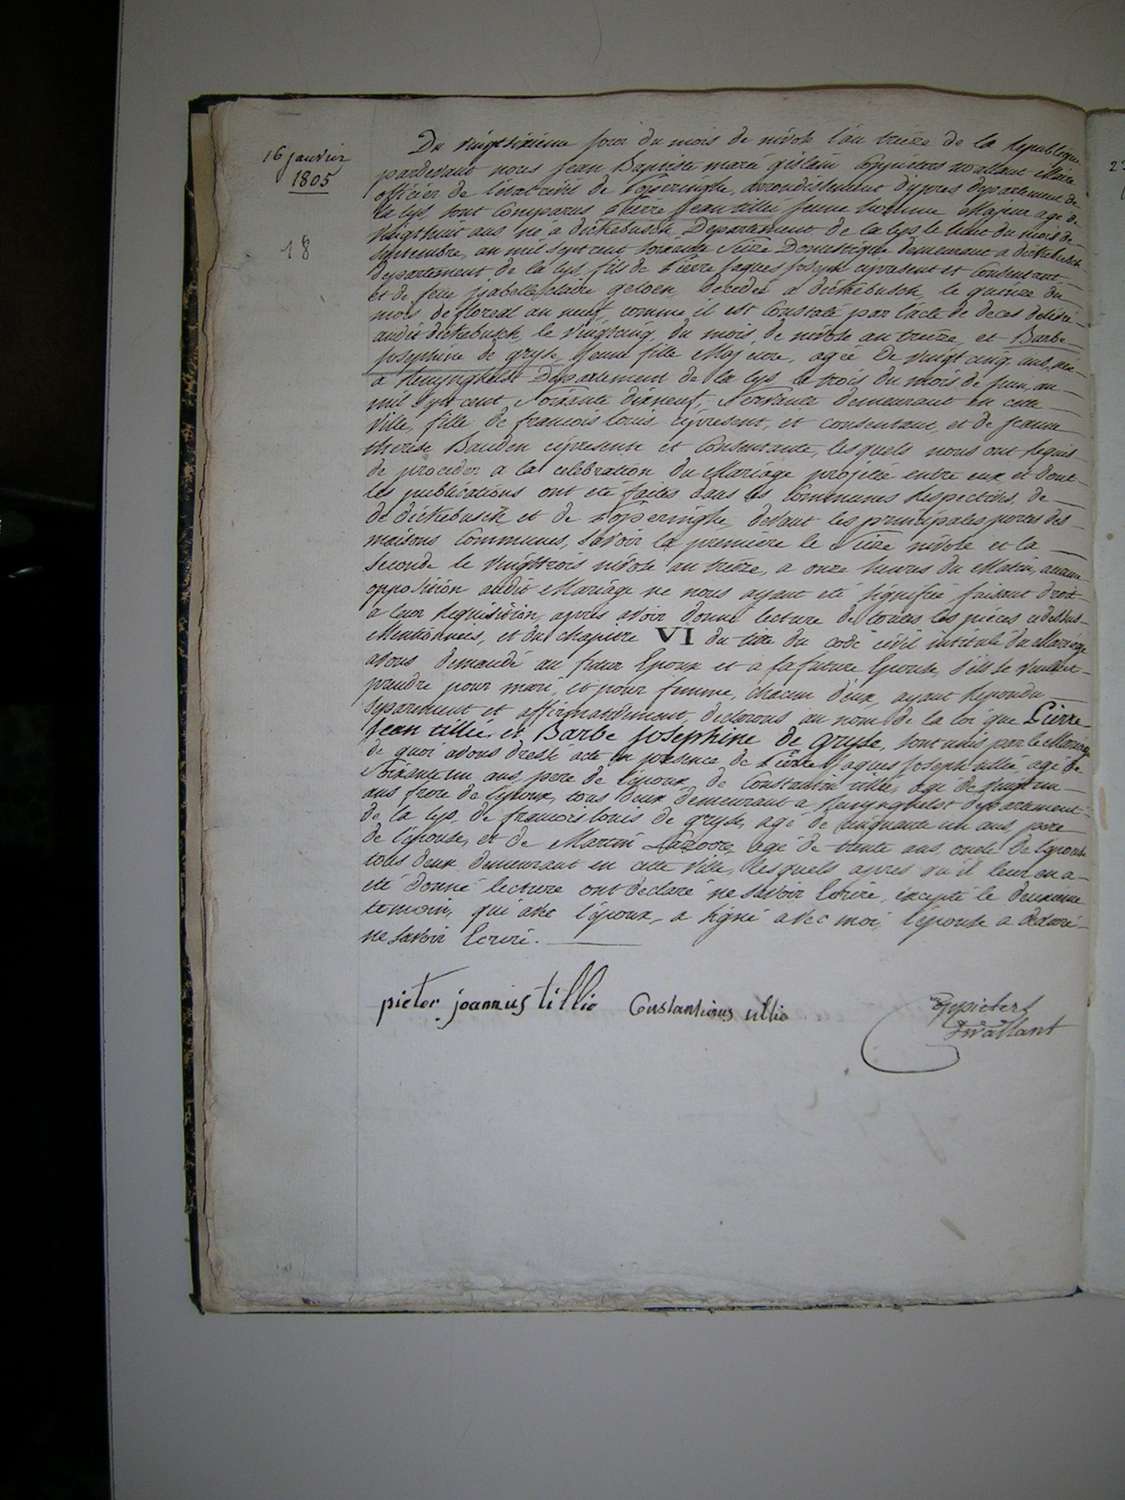 16 janvier
1805
18
Du vingtsixième jour du mois de nivose l'an treize de la Republique
pardevant nous Jean Baptiste marie gislain Coppieters wallant Maire
officier de l'état civil de Poperinghe, arrondissement d'ypres departement de
la lys, sont Comparus Pierre Jean tillié jeune homme Majeur agé de
vingthuit ans né a dickebusch Departement de la lys le huit du mois de
Septembre, an mil sept cent soixante Seize Domestique demeurant a dickebusch
departement de la lys, fils de Pierre Jaques Joseph cipresent et consentant
et de feue isabelle claire geloen, decedée a dickebusch, le quinze du
mois de floreal an neuf, comme il est Constaté par l'acte de deces delivré
audit dickebusch, le vingtcinq, du mois, de nivose an treize, et Barbe
Josephine de gryse, jeune fille Majeure, agée de vingt cinq ans, née
a Renynghelst Departement de la lys, le trois du mois de juin, an
mil sept cent Soixante dixneuf, Servante demeurant en cette
ville, fille de francois louis, cipresent, et consentant, et de jeanne
therese Bauden cipresente et Consentante, les quels nous ont requis
de proceder a la celebration du Mariage projetté entre eux et dont
les publications ont été faites dans les Communes respectives, de
de dickebusch et de Poperinghe, devant les principales portes des
maisons Communes, savoir la première le Seize nivose et la
seconde le vingttrois nivose an treize, a onze heures du Matin, aucune
opposition audit Mariage ne nous ayant été signifiée faisant droit
a leur requisition, apres avoir donné lecture de toutes les pièces cidessus
Mentionnées, et du chapitre VI du titre du code civil intitulé du Mariage
avons demandé au futur Epoux et a la future Epouse, s'ils se veullent
prendre pour mari, et pour femme, chacun d'eux, ayant repondu
separement et affirmativement, declarons au nom de la loi que Pierre
Jean tillié et Barbe josephine de gryse, sont unis par le Mariage
de quoi avons dressé acte en presence de Pierre Jaques Joseph tillié, agé de
Soixante un ans, pere de l'epoux, de Constantin tillie, agé de vingt un
ans frere de l'epoux, tous deux demeurant a Renynghelst departement
de la lys, de francois louis de gryse, agé de cinquante un ans, pere
de l'epouse, et de Martin agé de trente ans, oncle de l'epouse
tous deux demeurant en cette ville, les quels apres qu'il leur en a
été donné lecture ont declaré ne savoir Ecrire, excepté le deuxieme
temoin, qui avec l'epoux, a signé avec moi, l'epouse a declaré
ne savoir Ecrire.
pieter joannis tillie Constantinus tillie
Coppieters
wallant